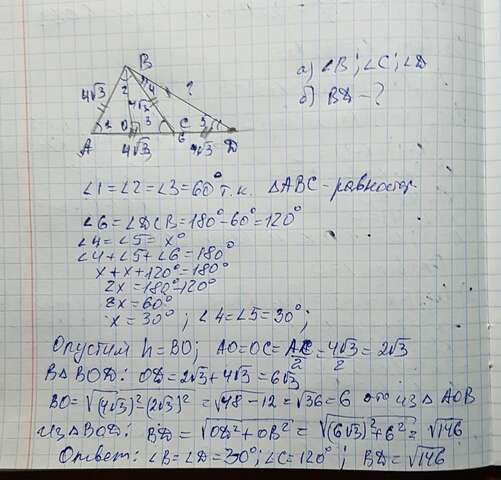 B
а) ∠B; ∠C; ∠D
4√3 2 4 ?
б) BD - ?
4√3
1 O 3 C 5
A 6 D
4√3 4√3
∠1=∠2=∠3=60° т.к. ΔABC - равностор.
∠6=∠DCB=180°-60°=120°
∠4=∠5=x°
∠4+∠5+∠6=180°
x+x+120°=180°
2x=180-120°
2x=60°
x=30°; ∠4=∠5=30°;
Опустим h=BO; AO=OC=AC/2=4√3/2=2√3
В ΔBOD: OD=2√3+4√3=6√3
BO=√(4√3)²-(2√3)²=√48-12=√36=6 это из ΔAOB
Из ΔBOD: BD=√OD²+OB²=√(6√3)²+6²=√146
Ответ: ∠B=∠D=30°; ∠C=120°; BD=√146